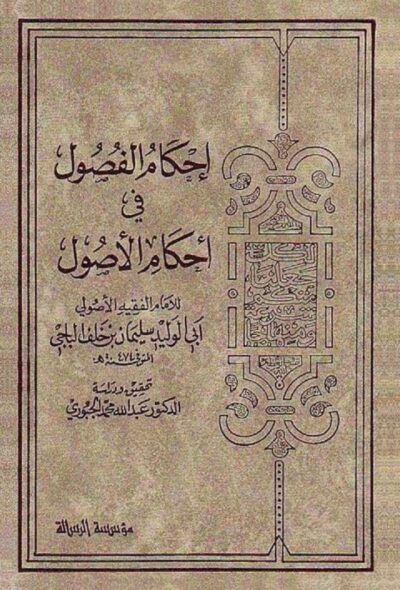 إحكام الفصول
في
أحكام الأصول
للإمام الفقيه الأصولي
أبي الوليد سليمان بن خلف الباجي
المتوفى سنة ٤٧٤ هـ
تحقيق ودراسة
الدكتور عبد الله محمد الجبوري
مؤسسة الرسالة